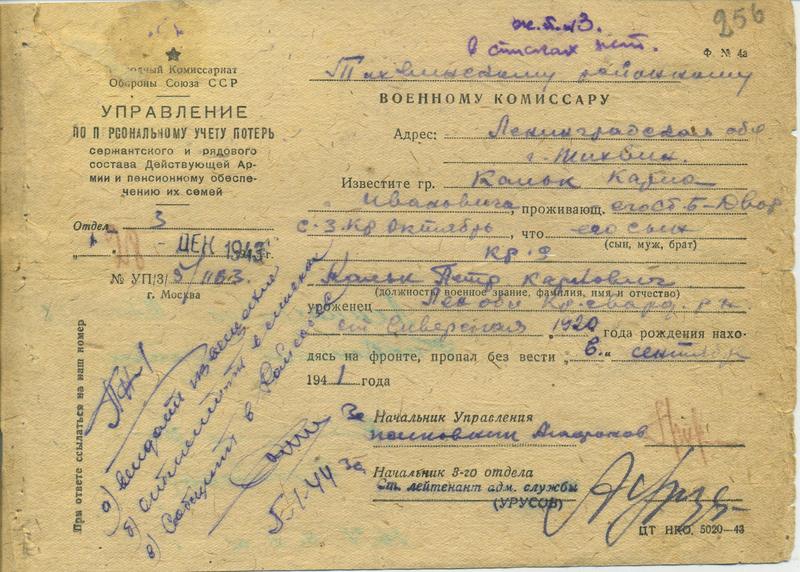 256
в списках нет.
Ф. № 4а
Народный Комиссариат
Обороны Союза ССР
УПРАВЛЕНИЕ
ПО ПЕРСОНАЛЬНОМУ УЧЕТУ ПОТЕРЬ
сержантского и рядового
состава Действующей Ар-
мии и пенсионному обеспе-
чению их семей
Отдел 3
ДЕК 1943 г.
№ УП/3/
г. Москва
При ответе ссылаться на наш номер
Тихвинскому районному
ВОЕННОМУ КОМИССАРУ
Адрес: Ленинградская обл
г. Тихвин.
Известите гр. Кальк Карла
Ивановича, проживающ.
с-з Кр Октябрь, что его сын
(сын, муж, брат)
кр-ц
Кальк Петр Карлович
(должность, военное звание, фамилия, имя и отчество)
уроженец Лен обл Кр-гвард. р-н
ст Сиверская 1920 года рождения нахо-
дясь на фронте, пропал без вести „ в “ сентябре
1941 года
За Начальник Управления
полковник
За Начальник 3-го отдела
Ст. лейтенант адм. службы
(УРУСОВ)
ЦТ НКО, 5020—43
а) выдать извещение
б)
в) Сообщить в Райсобес